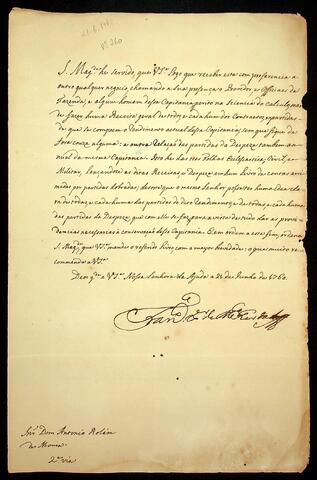 S. Mag.e he servido, que V.S. logo que receber esta com preferencia a
outro qualquer negocio, chamando a sua presença o Provedor, e Officiaes da
Fazenda, e algum homem dessa Capitania perito na sciencia do calculo, mande
fazer huma Receita geral de todos, e cada hum dos Contractos, e partidas
de que se compoem o Rendimento actual dessa Capitania; sem que fique de
fora couza alguma: e outra Relação das partidas da Despeza tambem an-
nual da mesma Capitania. Isto he das tres Folhas Ecclesiastica, Civil, e
Militar, lançandose as ditas Receitas, e Despeza em hum Livro de contas arru-
madas por partidas dobradas; de sorte que o mesmo Senhor possa ter huma idea cla-
ra de todas, e cada huma das partidas do dito Rendimento, e de todas, e cada huma
das partidas da Despeza, que com elle se faz, para à vista de tudo dar as provi-
dencias necessarias à conservação dessa Capitania. E em ordem a este fim, ordena
S. Mag.e que V.S. mande o referido Livro com a mayor brevidade: o que muito re-
commendo a V.S.
Deos g.e a V.S. Nossa Senhora da Ajuda a 26 de Junho de 1760.
Snr. Dom Antonio Rolim
de Moura
2.a via